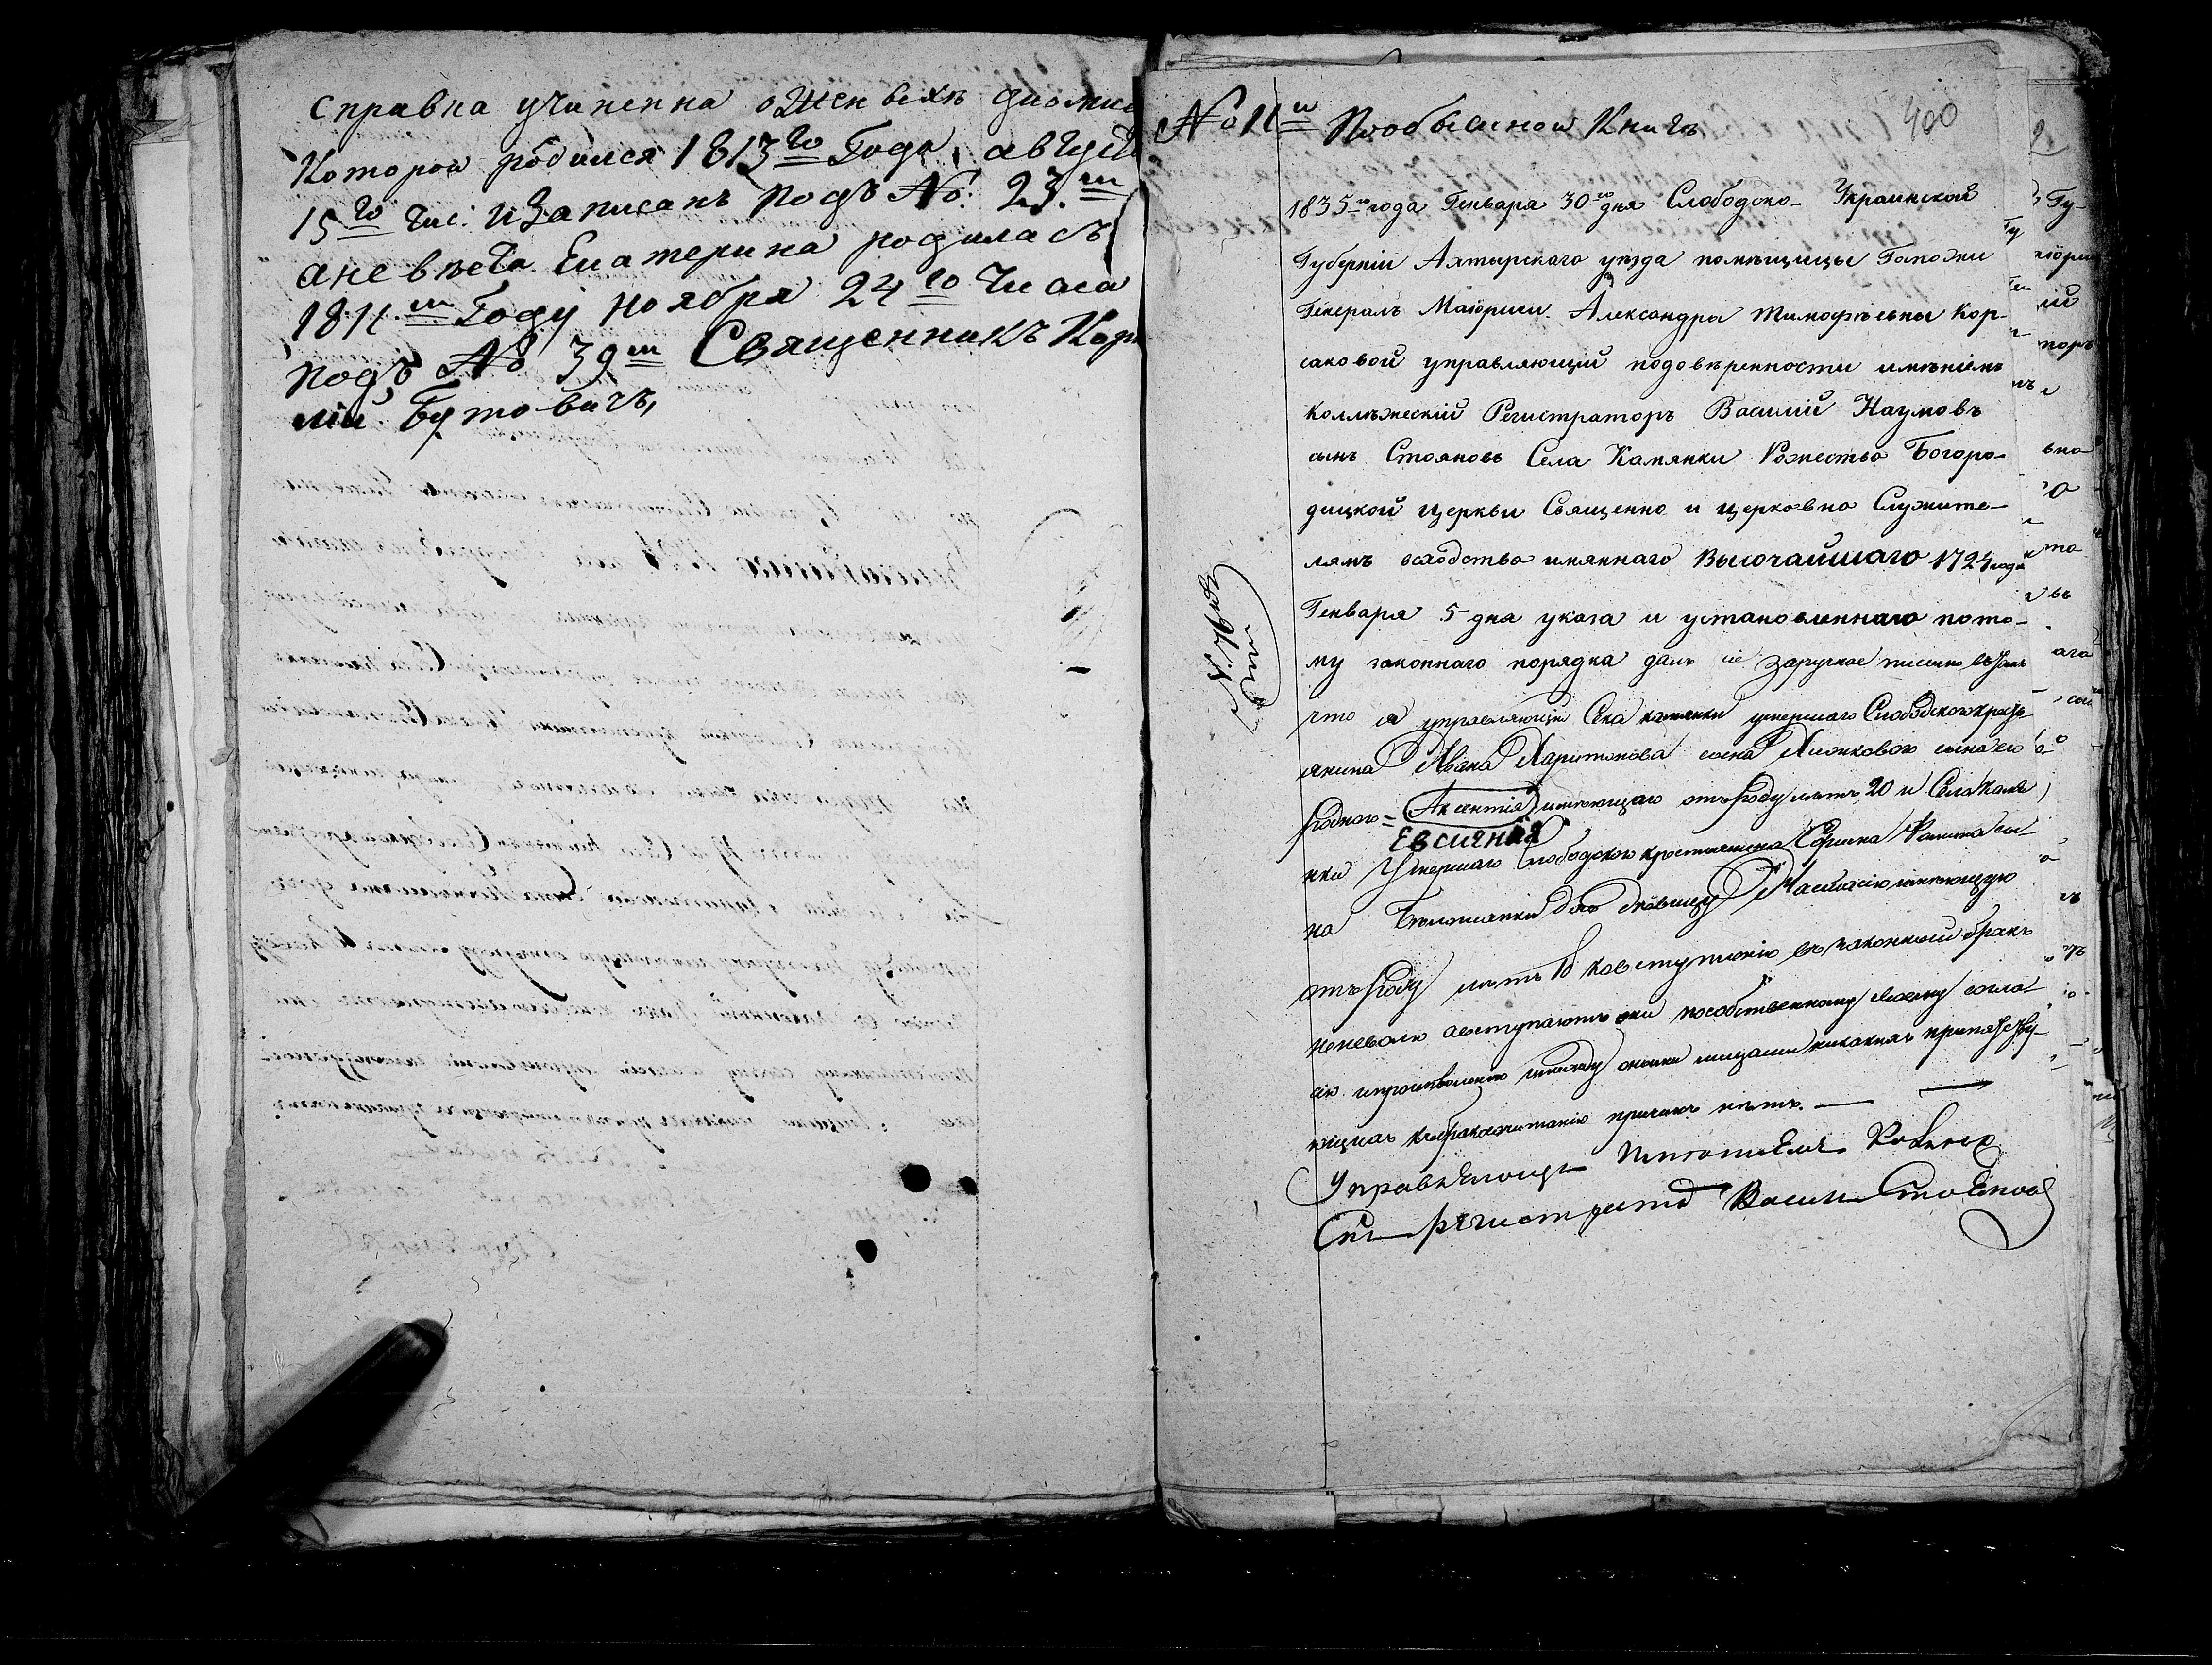 справка учиненна о женвехъ диоми
которои родился 1813го Года август
15го чис: и записанъ подъ №: 23.м
а невѣста Екатерина родилась
1811м Году ноября 24го числа
подъ № 39м Священникъ Кор
лій Бутовичъ,
№ 11и Пообыскной Книгѣ
400
1835го года Генваря 30го дня Слободско- Украинской
Губерніи Ахтырскаго уѣзда помѣщицы Госпожи
Генералъ Маіорши Александры Тимофѣевны Кор-
саковой управляющій подовѣренности имѣніемъ
коллѣжескій Регистраторъ Василій Наумовъ
сынъ Стояновъ Села Камянки Рожество Богоро-
дицкой Церкви Священно и церковно Служите-
лямъ всходство имяннаго Высочайшаго 1724 года
Генваря 5 дня указа и установленнаго пото-
му законнаго порядка далъ сіе заручное письмо въ томъ
что я управляющій Села камянки умершаго Слободского крестъ
янина Ивана Харитонова сына сына его
родного = Аксентія имѣющаго отъ роду лѣтъ 20 и Села Камя
Евсигнія
нки Умершаго слободского крестьянина сы
на дочь дѣвицу Настасію имѣющую
отъ роду лѣтъ 18 ковступленію въ законный бракъ
неневолю авступаютъ они пособственному своему согла
сію ипроизволенію имежду оными лицами никакихъ припятству-
ющихъ кбракосочитанію причинъ нѣтъ. —
Управляющи
Василъ Стояновъ